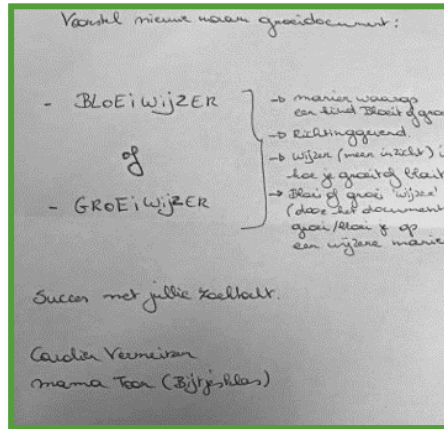 Voorstel nieuwe naam groeidocument:
- BLOEiWijZER
of
- GROEiWijZER
→ manier waarop
een kind Bloeit of groe
→ Richtinggevend.
→ Wijzer (meer inzicht) i
hoe je groeit of bloeit
→ Bloei of groei 'wijzer'
(door het document
groei/bloei je op
een wijzere manie
Succes met jullie zoektocht.
Vermeiren
mama Toon (Bijtjesklas)